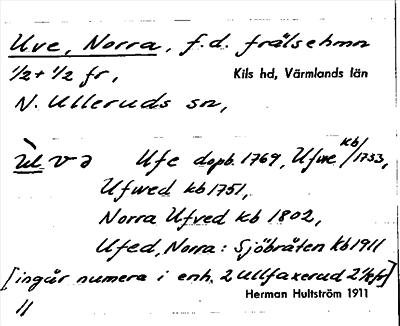 Uve, Norra, f.d. frälsehmn
½ + ½ fr, Kils hd, Värmlands län
N. Ulleruds sn,
Ufe dopb. 1769, Ufwe kb/1733,
Ufwed kb 1751,
Norra Ufved kb 1802,
Ufed, Norra: Sjöbråten kb 1911
[ingår numera i enh. 2 Ullfaxerud
Herman Hultström 1911